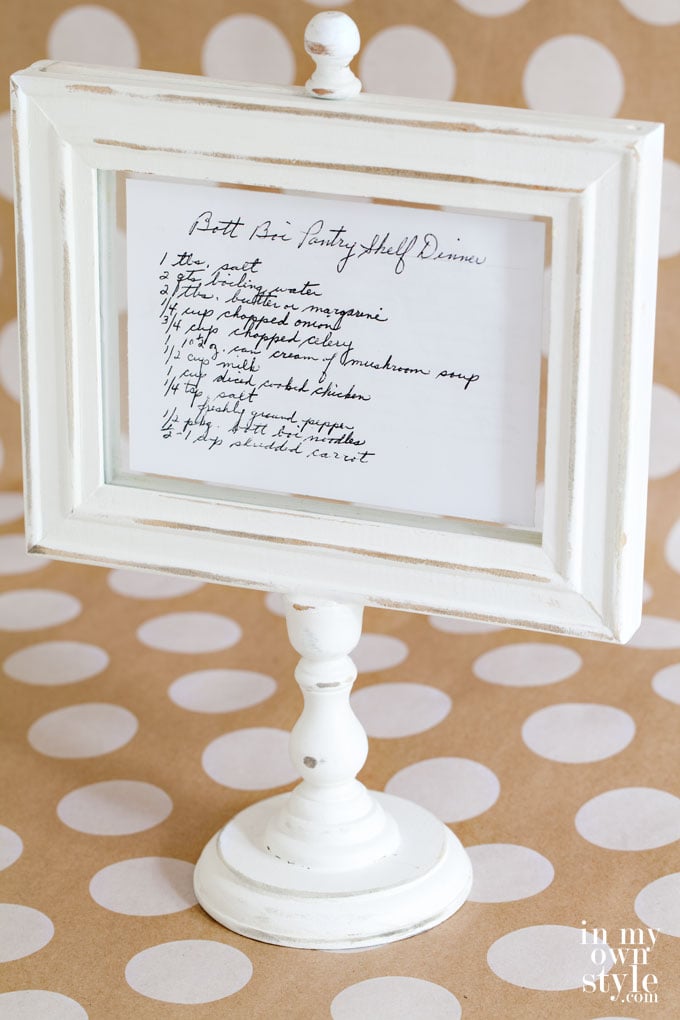 Bott Boi Pantry Shelf Dinner
1 tbs. salt
2 qts boiling water
2 tbs. butter or margarine
1/4 cup chopped onion
3/4 cup chopped celery
1 10 1/2 oz. can cream of mushroom soup
1/2 cup milk
1 cup diced cooked chicken
1/4 tsp salt
freshly ground pepper
1/2 pkg. bott boi noodles
1/2 - 1 cup shredded carrot
in my
own
style
.com